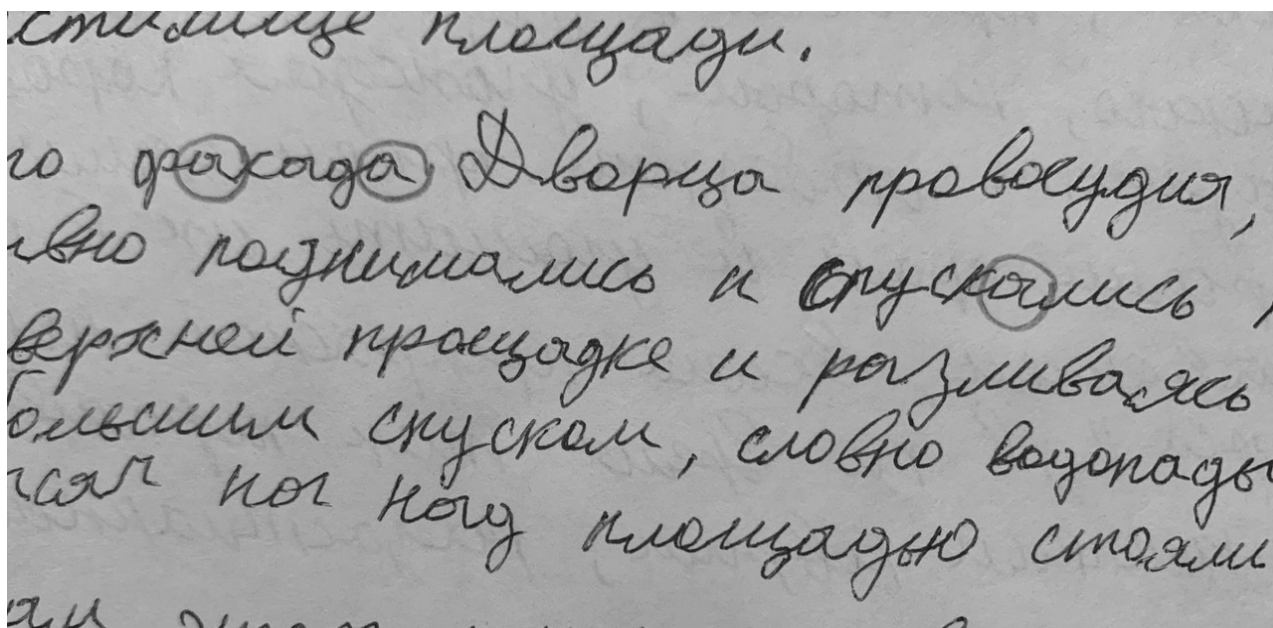 стилище площади.
го фасада Дворца правосудия,
ывно поднимались и спускались
верхней площадке и разливаясь
большим спуском, словно водопады
ног над площадью стояли